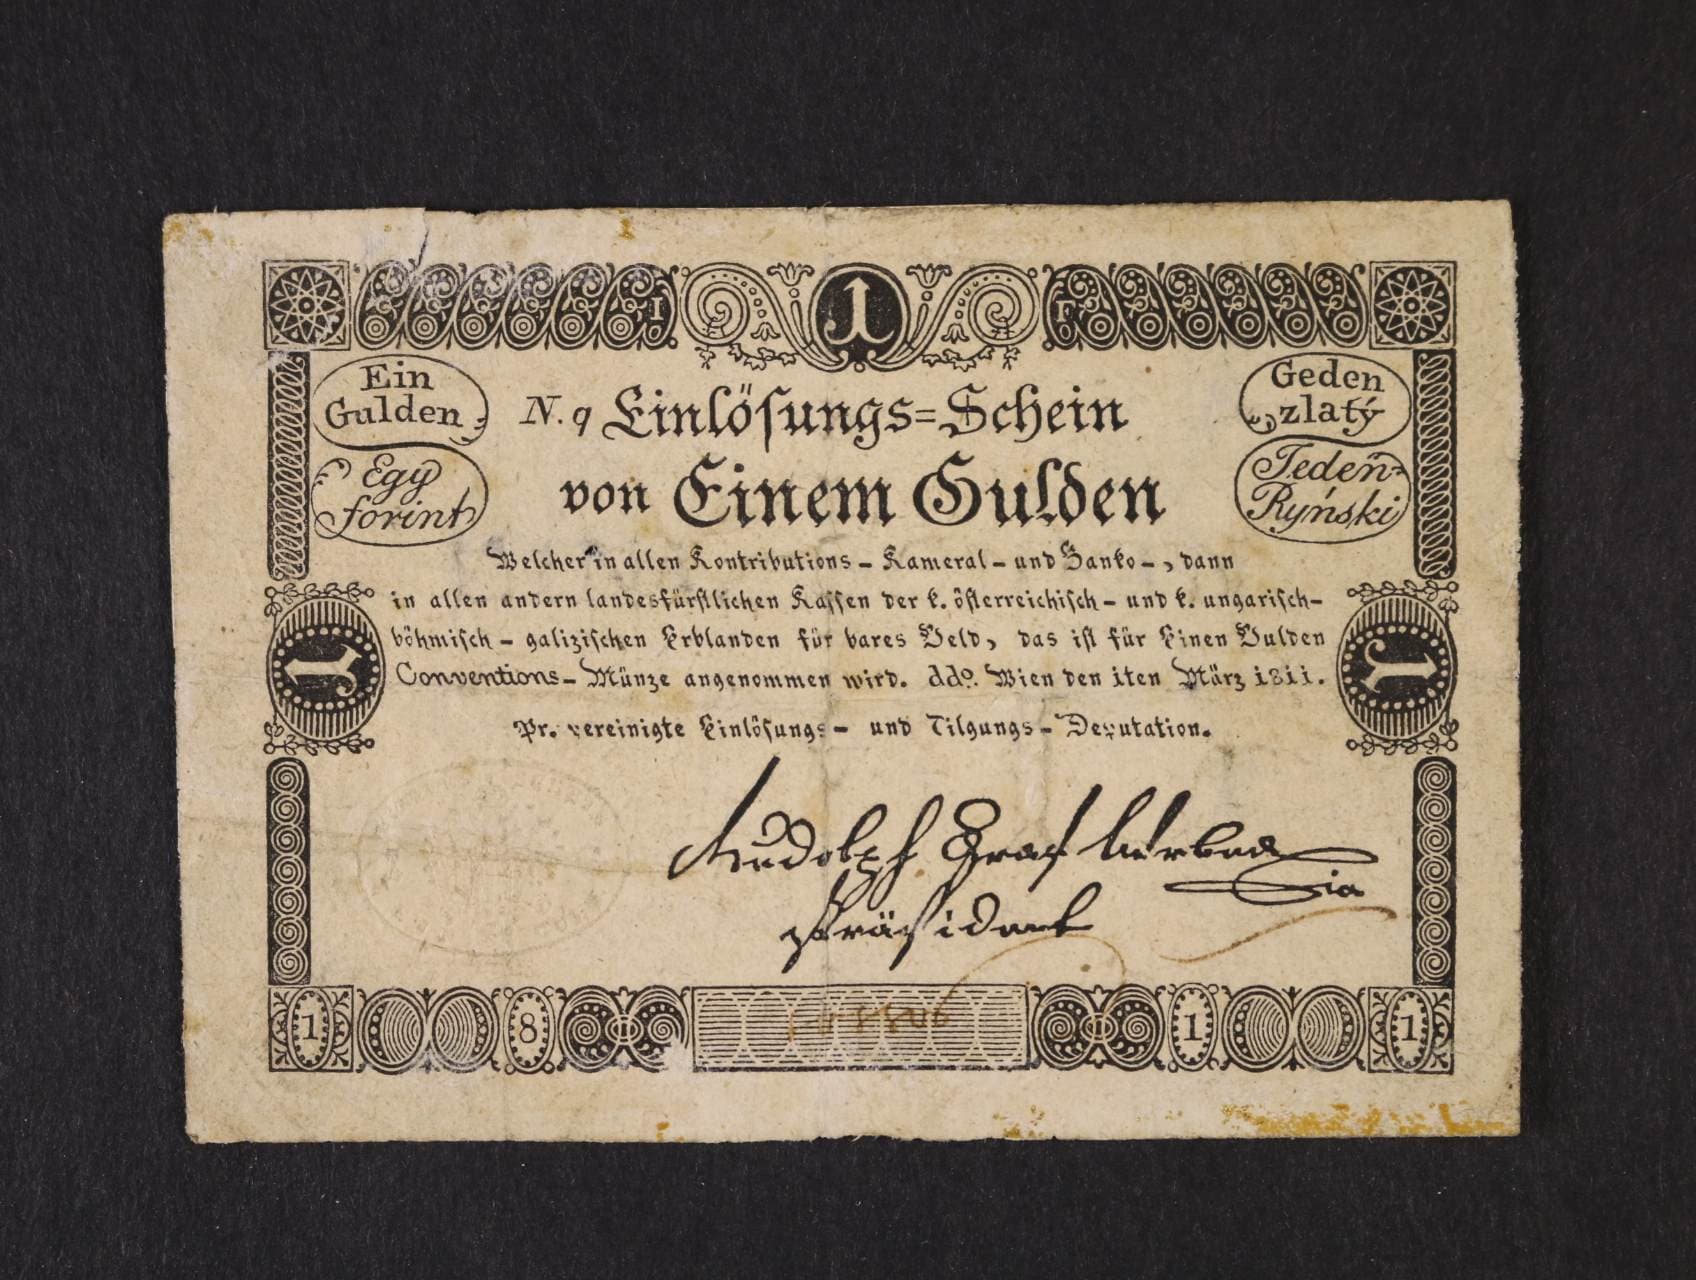 1
Ein
Gulden
Egy
forint
Geden
zlatý
Jeden
Ryński
N. 9 Einlösungs=Schein
von Einem Gulden
Welcher in allen Kontributions - Kameral - und Banko-, dann
in allen andern landesfürstlichen Kassen der k. österreichisch - und k. ungarisch-
böhmisch - galizischen Erblanden für bares Geld, das ist für Einen Gulden
Conventions - Münze angenommen wird. ddo. Wien den 1ten März 1811.
Pr. vereinigte Einlösungs - und Tilgungs - Deputation.
1
1
Rudolph Graf
Präsident
1 8 1 1